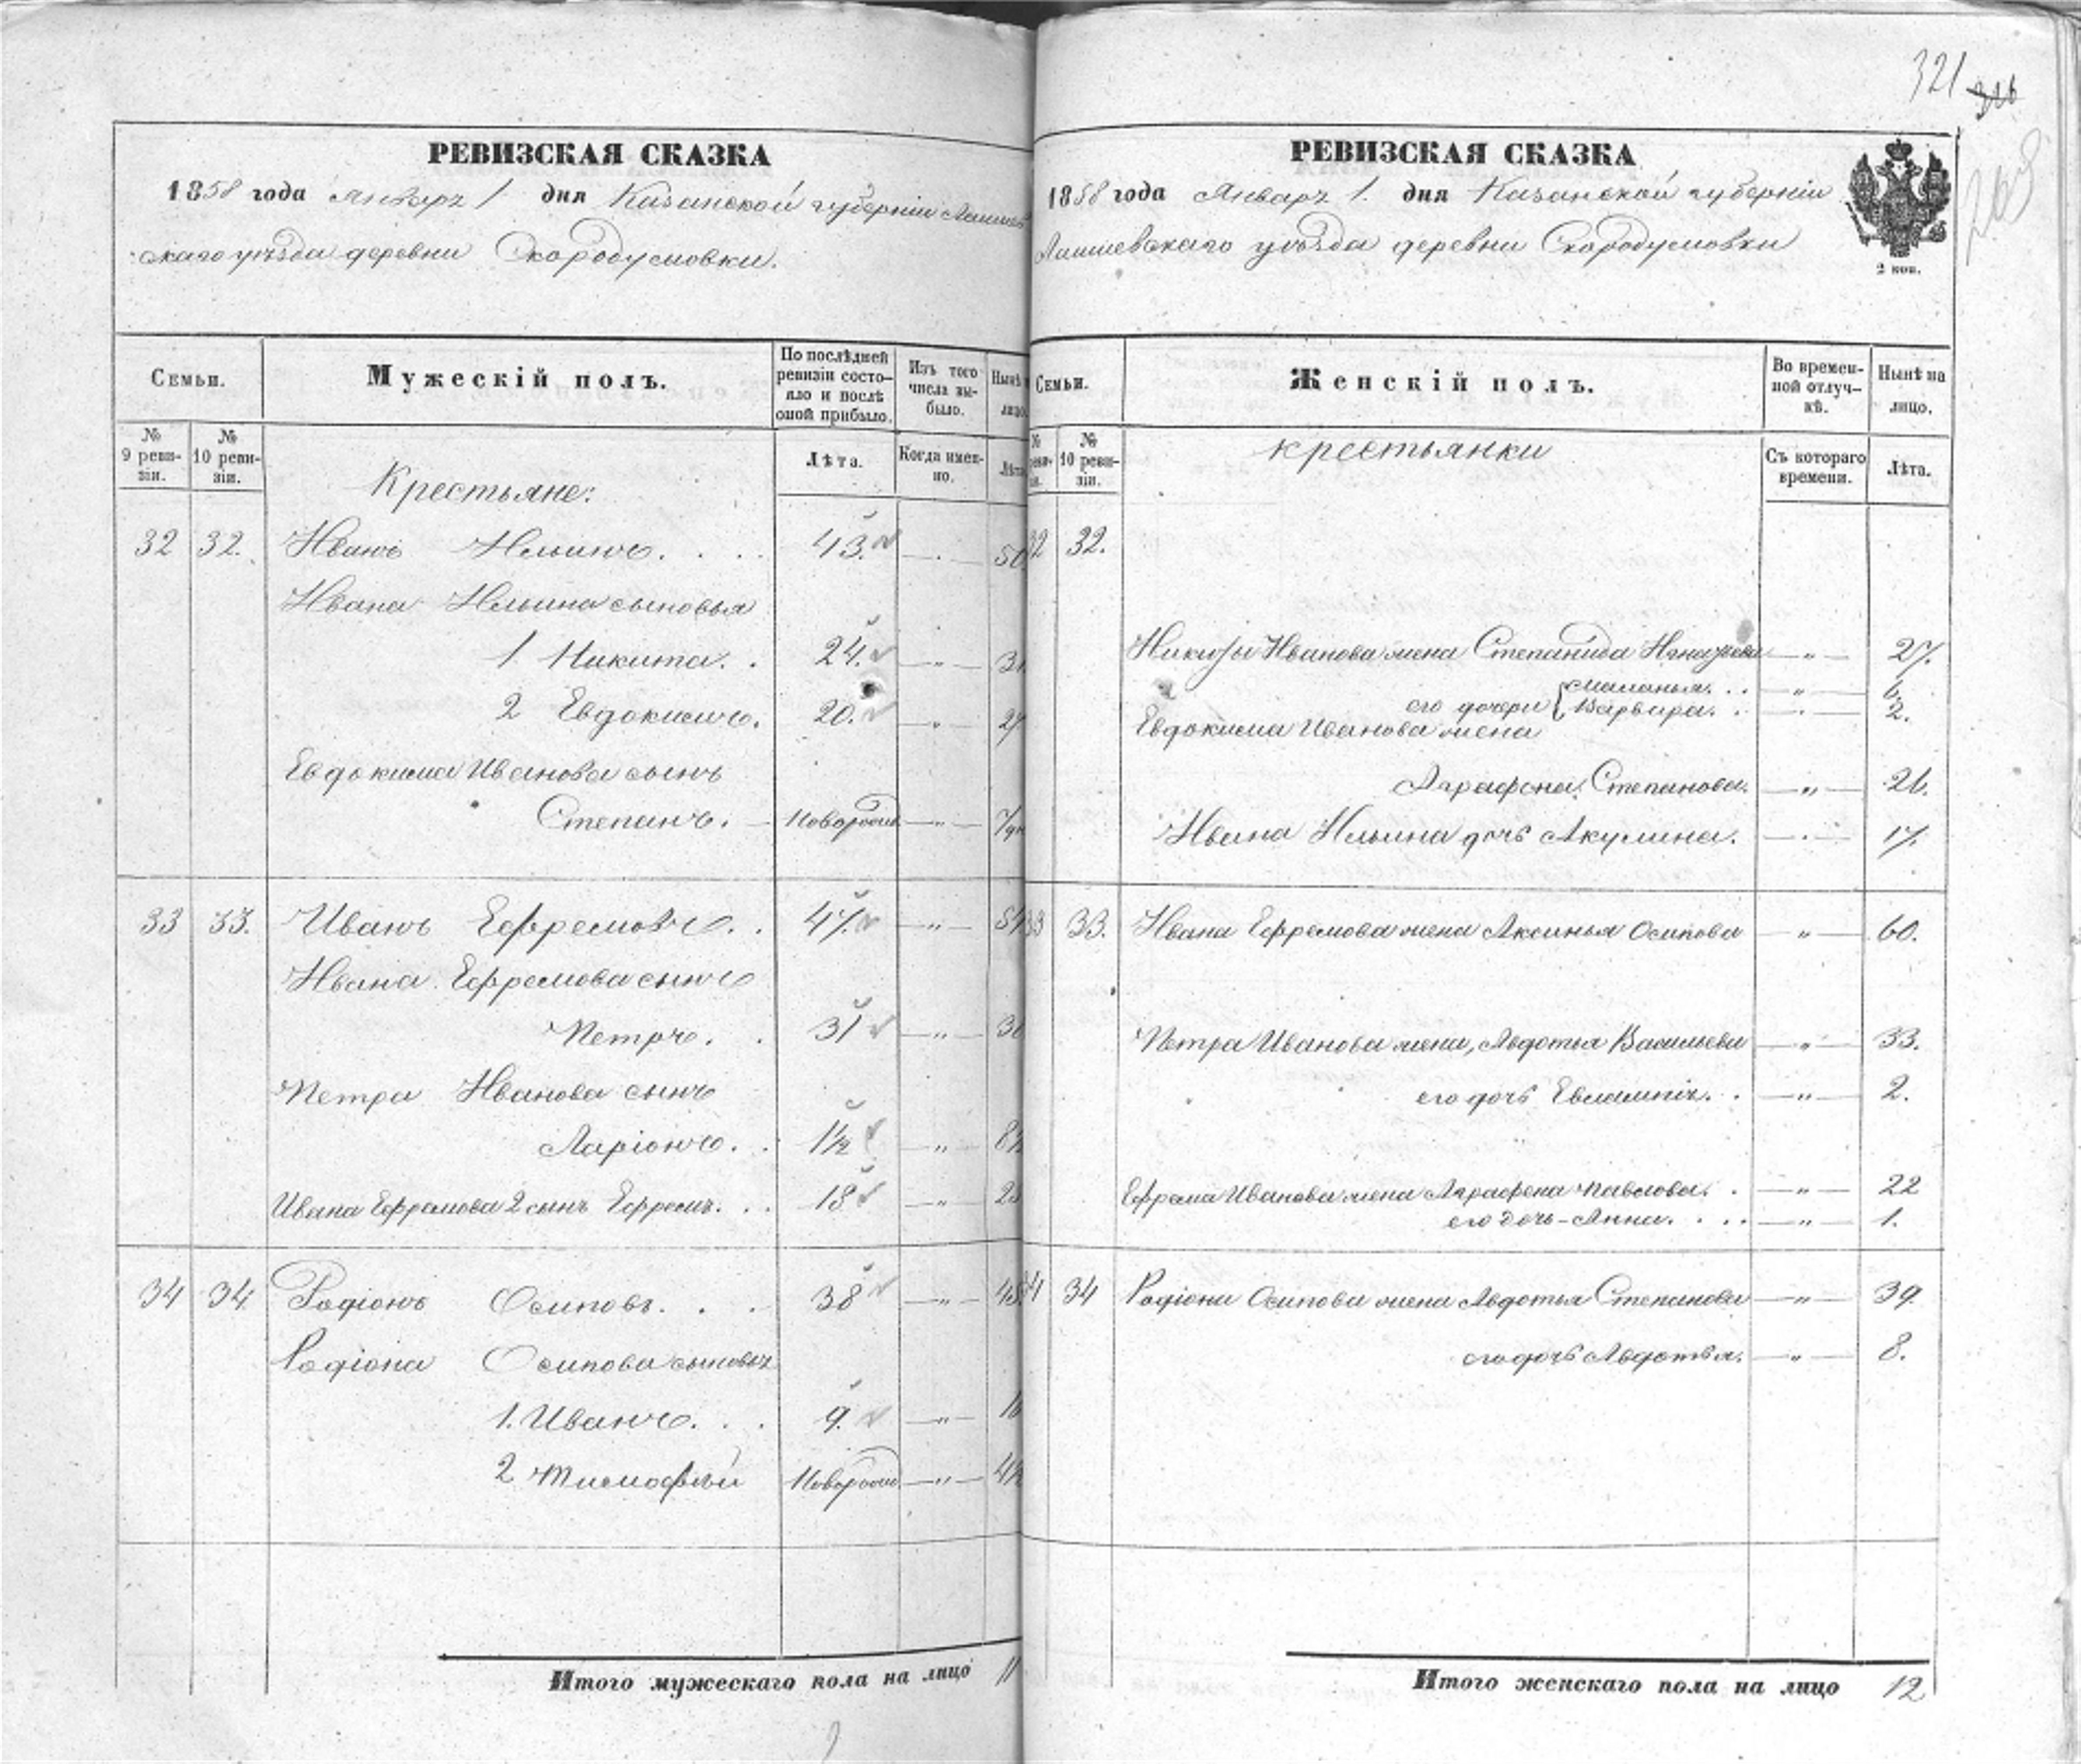 321 316
268
РЕВИЗСКАЯ СКАЗКА
1858 года Январъ 1 дня Казанской губерніи Лаишев
скаго уѣзда деревни Скородумовки.
Семьи.
Мужескій полъ.
По послѣдней ревизіи состояло и послѣ оной прибыло.
Изъ того числа выбыло.
Нынѣ
лицо
№ 9 ревизіи.
№ 10 ревизіи.
Лѣта.
Когда именно.
Лѣта
Крестьяне:
32 32. Иванъ Ильинъ. . . . 43. 50
Ивана Ильина сыновья
1 Никита. . 24. " 31
2 Евдокимъ. 20. " 27
Евдокима Иванова сынъ
Степанъ. Новорожд " 7
33 33. Иванъ Ефремовъ. . 47. " 54
Ивана Ефремова сынъ
Петръ. . 31 " 38
Петра Иванова сынъ
Ларіонъ. . 1½ " 8½
Ивана Ефремова 2 сынъ Ефремъ. . . 18 " 25
34 34. Родіонъ Осиповъ. . . 38 " 45
Родіона Осипова сыновья
1. Иванъ. . . 9. " 16
2 Тимофѣй Новорожд " 4½
Итого мужескаго пола на лицо 11
РЕВИЗСКАЯ СКАЗКА
1858 года Январъ 1. дня Казанской губерніи
Лаишевскаго уѣзда деревни Скородумовки
2 коп.
Семьи.
Женскій полъ.
Во временной отлучкѣ.
Нынѣ на лицо.
№ 10 ревизіи.
Съ котораго времени.
Лѣта.
крестьянки
32 32.
Никиты Иванова жена Степанида " 27.
его дочери { Маланья. . . " 6.
Варвара. . 2.
Евдокима Иванова жена
Аграфена Степанова. " 26.
Ивана Ильина дочь Акулина. 17.
33 33. Ивана Ефремова жена Аксинья Осипова " 60.
Петра Иванова жена, Авдотья Васильева " 33.
его дочь Евлампія. . " 2.
Ефрема Иванова жена Аграфена Павлова. . " 22
его дочь - Анна. . . . " 1.
34 34 Родіона Осипова жена Авдотья Степанова " 39.
его дочь Авдотья. " 8.
Итого женскаго пола на лицо 12